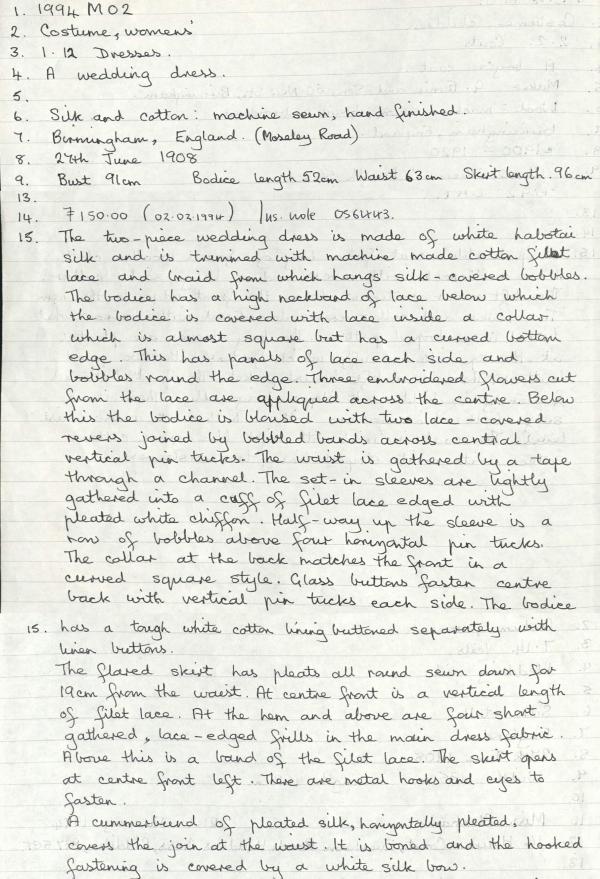 1. 1994 M02
2. Costume, womens'
3. 1.12 Dresses.
4. A wedding dress.
5.
6. Silk and cotton: machine sewn, hand finished.
7. Birmingham, England. (Moseley Road)
8. 27th June 1908
9. Bust 91cm Bodice length 52cm Waist 63cm Skirt length. 96cm
13.
14. £150.00 (02.02.1994) Ins. note 056443.
15. The two-piece wedding dress is made of white habotai
silk and is trimmed with machine made cotton filet
lace and braid from which hangs silk-covered bobbles.
The bodice has a high neckband of lace below which
the bodice is covered with lace inside a collar
which is almost square but has a curved bottom
edge. This has panels of lace each side and
bobbles round the edge. Three embroidered flowers cut
from the lace are appliqued across the centre. Below
this the bodice is bloused with two lace-covered
revers joined by bobbled bands across central
vertical pin tucks. The waist is gathered by a tape
through a channel. The set-in sleeves are lightly
gathered into a cuff of filet lace edged with
pleated white chiffon. Half-way up the sleeve is a
row of bobbles above four horizontal pin tucks.
The collar at the back matches the front in a
curved square style. Glass buttons fasten centre
back with vertical pin tucks each side. The bodice
15. has a tough white cotton lining buttoned separately with
linen buttons.
The flared skirt has pleats all round sewn down for
19cm from the waist. At centre front is a vertical length
of filet lace. At the hem and above are four short
gathered, lace-edged frills in the main dress fabric.
Above this is a band of the filet lace. The skirt opens
at centre front left. There are metal hooks and eyes to
fasten.
A cummerbund of pleated silk, horizontally pleated,
covers the join at the waist. It is boned and the hooked
fastening is covered by a white silk bow.